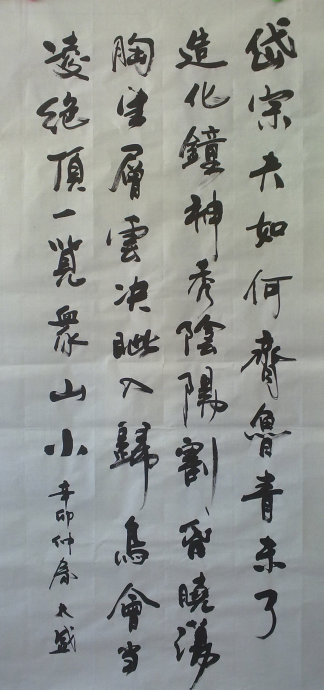 岱宗夫如何齊魯青未了
造化鐘神秀陰陽割昏曉蕩
胸生層雲決眦入歸鳥會當
凌絕頂一覽衆山小
辛卯仲夏大盛